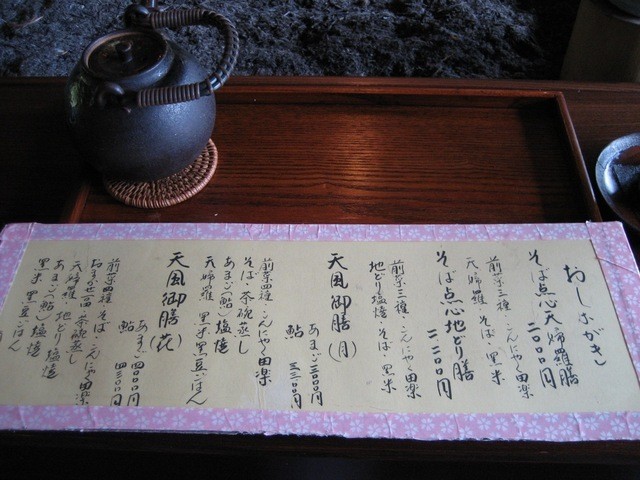 おしながき
そば点心天婦羅膳
二二〇〇〇円
前菜三種・こんにゃく田楽
天婦羅・そば・黒米
そば点心地どり膳
二二〇〇円
前菜三種・こんにゃく田楽
地どり塩焼・そば・黒米
天風御膳(月)
あまご三〇〇〇円
鮎 三三〇〇円
前菜四種・こんにゃく田楽
そば・茶碗蒸し
あまご(鮎)塩焼
天婦羅・黒米黒豆ごはん
天風御膳(花)
あまご四〇〇〇円
鮎 四三〇〇円
前菜四種・そば・こんにゃく田楽
茶碗蒸し
天婦羅・地どり塩焼
あまご(鮎)塩焼
黒米黒豆ごはん